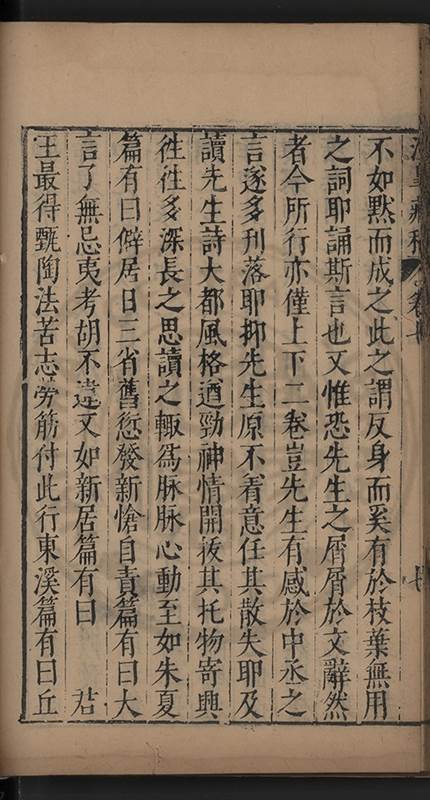 不如默而成之此之謂反身而奚有於枝葉無用
之詞耶誦斯言也又惟恐先生之屑屑於文辭然
者今所行亦僅上下二卷豈先生有感於中丞之
言遂多刋落耶抑先生原不着意任其散失耶及
讀先生詩大都風格遒勁神情開拔其托物寄興
徃徃多深長之思讀之輙爲脉脉心動至如朱夏
篇有曰僻居日三省舊愆發新愴自責篇有曰大
言了無忌夷考胡不違又如新居篇有曰 君
王最得甄陶法苦志勞筋付此行東溪篇有曰丘